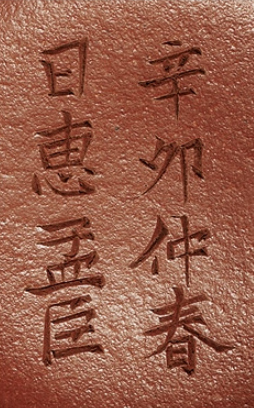 辛卯仲春
日惠孟臣